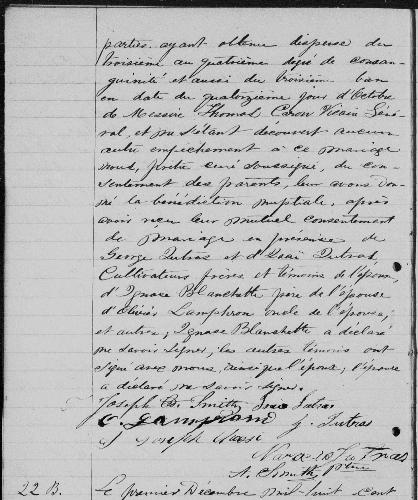 parties ayant obtenu dispense du
troisième au quatrième degré de consan-
guinité et aussi du troisième ban
en date du quatorzième jour d'Octobre
de Messire Thomas Caron Vicaire-Géné-
ral, et ne s'étant découvert aucun
autre empêchement à ce mariage
nous, prêtre curé soussigné, du con-
sentement des parents, leur avons don-
né la bénédiction nuptiale, après
avoir reçu leur mutuel consentement
de mariage en présence de
George Jutras et d'Isaï Jutras,
Cultivateurs frères et témoins de l'époux,
d'Ignase Blanchette père de l'épouse
d'Olivier Lampron oncle de l'épouse,
et autres; Ignase Blanchette a déclaré
ne savoir signer, les autres témoins ont
signé avec nous, ainsi que l'époux; l'épouse
a déclaré ne savoir signer.
Joseph Smith Jutras
O. Lamprond G. Jutras
Joseph
Jutras
A. Smith Ptre
22 B. Le premier Décembre mil-huit cent